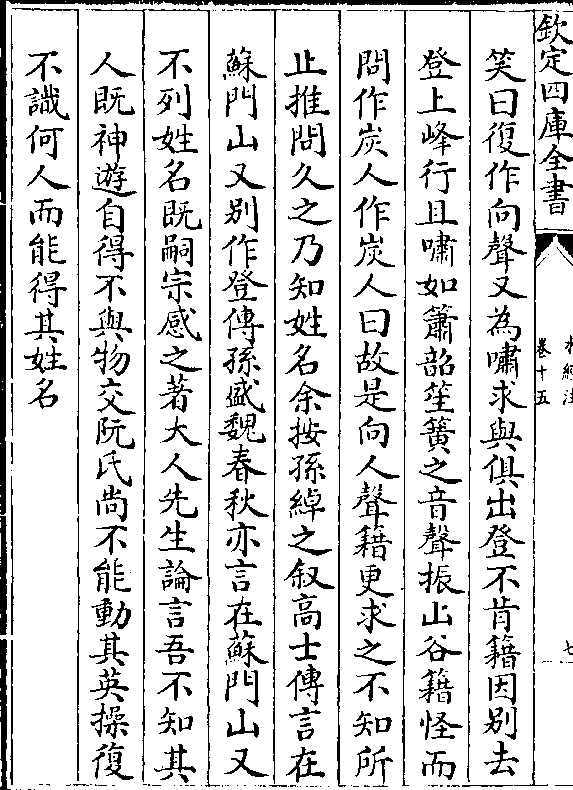 欽定四庫全書
水經注
卷十五
七
笑曰復作向聲又為嘯求與俱出登不肯籍因别去
登上峰行且嘯如簫韶笙簧之音聲振山谷籍怪而
問作炭人作炭人曰故是向人聲籍更求之不知所
止推問久之乃知姓名余按孫綽之叙高士傳言在
蘇門山又别作登傳孫盛魏春秋亦言在蘇門山又
不列姓名既嗣宗感之著大人先生論言吾不知其
人既神遊自得不與物交阮氏尚不能動其英操復
不識何人而能得其姓名